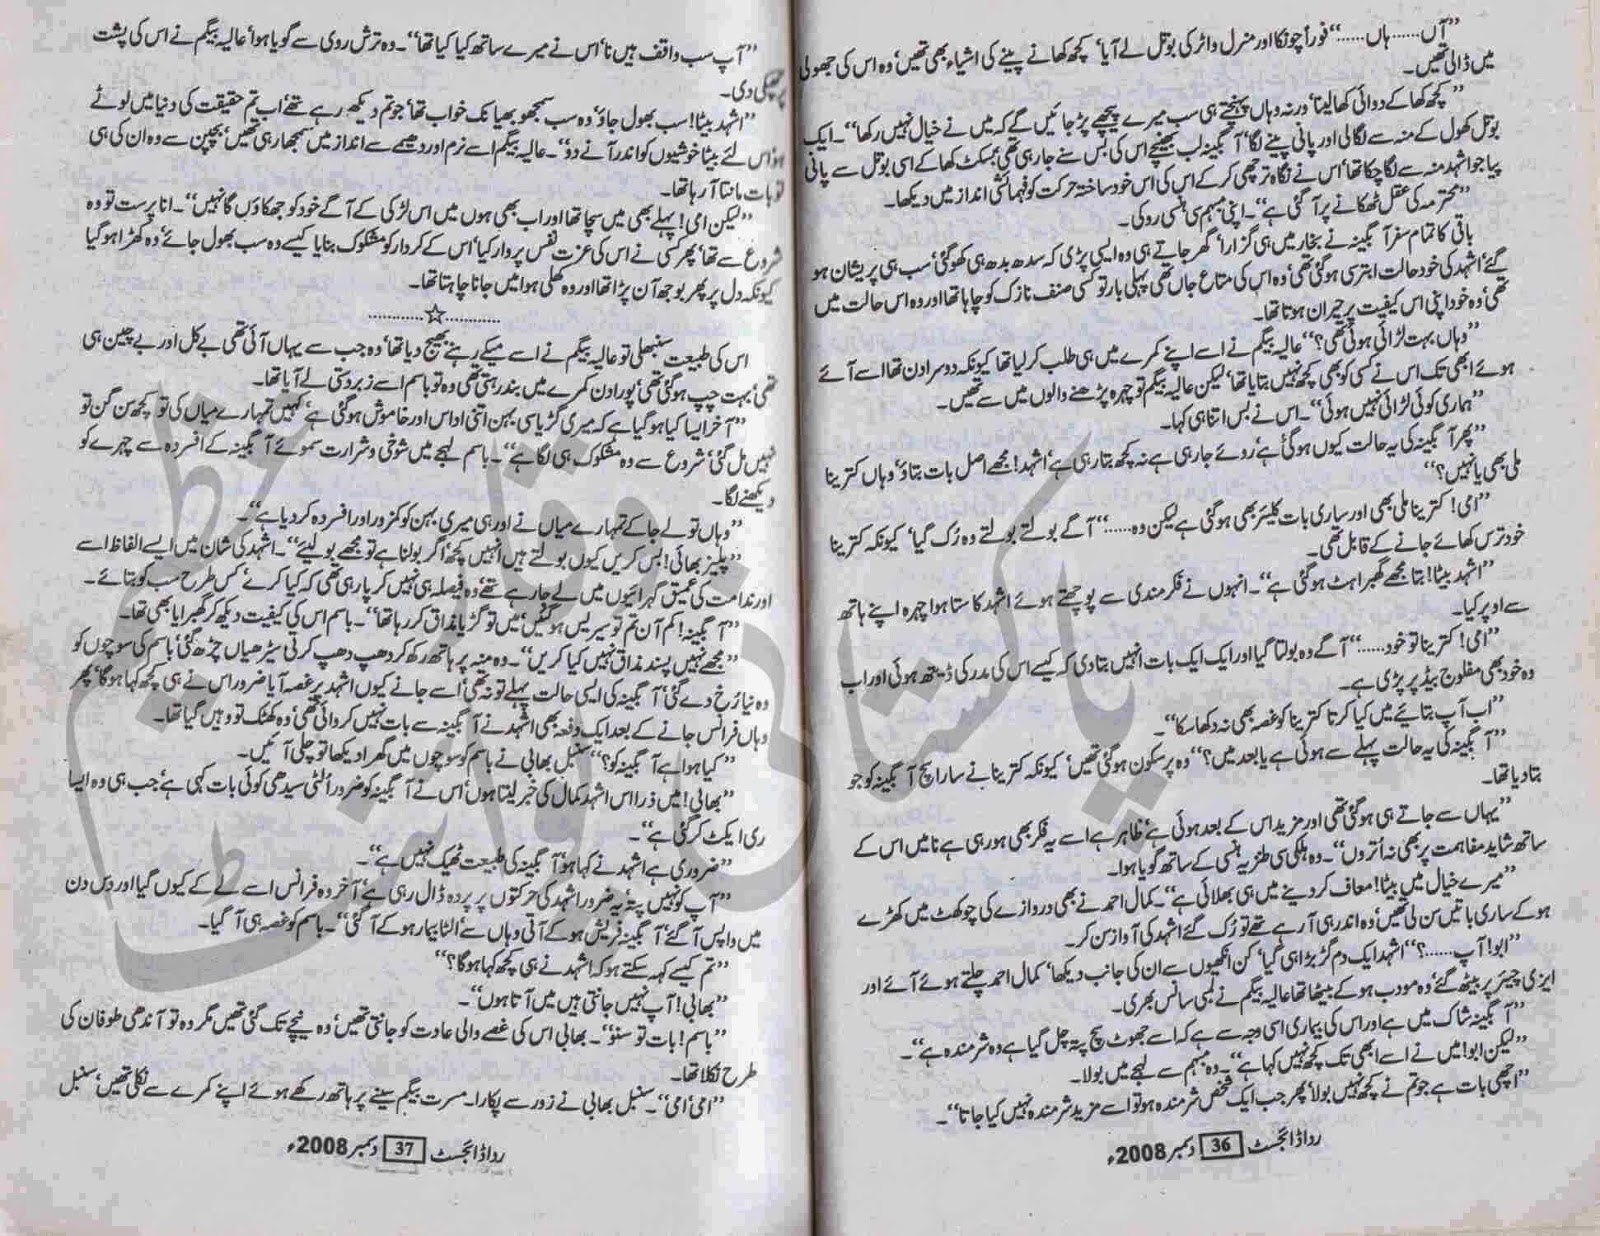 ”آں...... ہاں......“ فوراً چونکا اور منرل واٹر کی بوتل لے آیا‘ کچھ کھانے پینے کی اشیاء بھی تھیں‘ وہ اس کی جھولی
میں ڈالی تھیں۔
”کچھ کھا کے دوائی کھا لینا‘ ورنہ وہاں پہنچتے ہی سب میرے پیچھے پڑ جائیں گے کہ میں نے خیال نہیں رکھا“۔ ایک
بوتل کھول کے منہ سے لگا لی اور پانی پینے لگا‘ آبگینہ لب بھینچے اس کی بس سنے جا رہی تھی‘ بسکٹ کھا کے اسی بوتل سے پانی
پیا جو اشہد منہ سے لگا چکا تھا‘ اس نے نگاہ ترچھی کر کے اس کی اس خود ساختہ حرکت کو فہمائشی انداز میں دیکھا۔
”محترمہ کی عقل ٹھکانے پر آ گئی ہے“۔ اپنی مبہم سی ہنسی روکی۔
باقی کا تمام سفر آبگینہ نے بخار میں ہی گزارا‘ گھر جاتے ہی وہ ایسی پڑی کہ سدھ بدھ ہی کھو گئی‘ سب ہی پریشان ہو
گئے‘ اشہد کی خود حالت ابتر سی ہو گئی تھی‘ وہ اس کی متاع جاں تھی پہلی بار تو کسی صنف نازک کو چاہا تھا اور وہ اس حالت میں
تھی‘ وہ خود اپنی اس کیفیت پر حیران ہوتا تھا۔
”وہاں بہت لڑائی ہوئی تھی؟“ عالیہ بیگم نے اسے اپنے کمرے میں ہی طلب کر لیا تھا کیونکہ دوسرا دن تھا اسے آئے
ہوئے ابھی تک اس نے کسی کو بھی کچھ نہیں بتایا تھا‘ لیکن عالیہ بیگم تو چہرہ پڑھنے والوں میں سے تھیں۔
”ہماری کوئی لڑائی نہیں ہوئی“۔ اس نے بس اتنا ہی کہا۔
”پھر آبگینہ کی یہ حالت کیوں ہو گئی ہے‘ روئے جا رہی ہے نہ کچھ بتا رہی ہے‘ اشہد! مجھے اصل بات بتاؤ‘ وہاں کترینا
ملی بھی یا نہیں؟“
”امی! کترینا ملی بھی اور ساری بات کلیئر بھی ہو گئی ہے لیکن وہ......“ آگے بولتے بولتے وہ رُک گیا‘ کیونکہ کترینا
خود ترس کھائے جانے کے قابل تھی۔
”اشہد بیٹا! بتا مجھے گھبراہٹ ہو گئی ہے“۔ انہوں نے فکرمندی سے پوچھتے ہوئے اشہد کا ستا ہوا چہرہ اپنے ہاتھ
سے اوپر کیا۔
”امی! کترینا تو خود......“ آگے وہ بولتا گیا اور ایک ایک بات انہیں بتا دی کہ کیسے اس کی مدر کی ڈیتھ ہوئی اور اب
وہ خود بھی مفلوج بیڈ پر پڑی ہے۔
”اب آپ بتائیے میں کیا کرتا کترینا کو غصہ بھی نہ دکھا سکا“۔
”آبگینہ کی یہ حالت پہلے سے ہوئی ہے یا بعد میں؟“ وہ پرسکون ہو گئی تھیں‘ کیونکہ کترینا نے سارا سچ آبگینہ کو جو
بتا دیا تھا۔
”یہاں سے جاتے ہی ہو گئی تھی اور مزید اس کے بعد ہوئی ہے‘ ظاہر ہے اسے یہ فکر بھی ہو رہی ہے نا میں اس کے
ساتھ شاید مفاہمت پر بھی نہ اُتروں“۔ وہ ہلکی سی طنزیہ ہنسی کے ساتھ گویا ہوا۔
”میرے خیال میں بیٹا! معاف کر دینے میں ہی بھلائی ہے“۔ کمال احمد نے بھی دروازے کی چوکھٹ میں کھڑے
ہو کے ساری باتیں سن لی تھیں‘ وہ اندر ہی آ رہے تھے تو رُک گئے اشہد کی آواز سن کر۔
”ابو! آپ......؟“ اشہد ایک دم گڑبڑا ہی گیا‘ کن انکھیوں سے ان کی جانب دیکھا‘ کمال احمد چلتے ہوئے آئے اور
ایزی چیئر پر بیٹھ گئے‘ وہ مودب ہو کے بیٹھا تھا عالیہ بیگم نے لمبی سانس بھری۔
”آبگینہ شاک میں ہے اور اس کی بیماری اسی وجہ سے ہے کہ اسے جھوٹ سچ پتہ چل گیا ہے وہ شرمندہ ہے“۔
”لیکن ابو! میں نے اسے ابھی تک کچھ نہیں کہا ہے“۔ وہ مبہم سے لہجے میں بولا۔
”اچھی بات ہے جو تم نے کچھ نہیں بولا‘ پھر جب ایک شخص شرمندہ ہو تو اسے مزید شرمندہ نہیں کیا جاتا“۔
ردا ڈائجسٹ 36 دسمبر 2008ء
”آپ سب واقف ہیں نا‘ اس نے میرے ساتھ کیا کیا تھا“۔ وہ ترش روی سے گویا ہوا‘ عالیہ بیگم نے اس کی پشت
پر تھپکی دی۔
”اشہد بیٹا! سب بھول جاؤ‘ وہ سب سمجھو بھیانک خواب تھا‘ جو تم دیکھ رہے تھے‘ اب تم حقیقت کی دنیا میں لوٹے
ہو‘ اس لئے بیٹا خوشیوں کو اندر آنے دو“۔ عالیہ بیگم اسے نرم اور دھیمے سے انداز میں سمجھا رہی تھیں‘ بچپن سے وہ ان کی ہی
تو بات مانتا آ رہا تھا۔
”لیکن امی! پہلے بھی میں سچا تھا اور اب بھی ہوں میں اس لڑکی کے آگے خود کو جھکاؤں گا نہیں“۔ انا پرست تو وہ
شروع سے تھا‘ پھر کسی نے اس کی عزت نفس پر وار کیا‘ اس کے کردار کو مشکوک بنایا کیسے وہ سب بھول جائے‘ وہ کھڑا ہو گیا
کیونکہ دل پر پھر بوجھ آن پڑا تھا اور وہ کھلی ہوا میں جانا چاہتا تھا۔
............☆............
اس کی طبیعت سنبھلی تو عالیہ بیگم نے اسے میکے رہنے بھیج دیا تھا‘ وہ جب سے یہاں آئی تھی بے کل اور بے چین ہی
تھی‘ بہت چپ ہو گئی تھی‘ پورا دن کمرے میں بند رہتی تھی وہ تو باسم اسے زبردستی لے آیا تھا۔
”آخر ایسا کیا ہو گیا ہے کہ میری گڑیا سی بہن اتنی اداس اور خاموش ہو گئی ہے‘ کہیں تمہارے میاں کی تو کچھ سن گن تو
نہیں مل گئی‘ شروع سے وہ مشکوک ہی لگا ہے“۔ باسم لہجے میں شوخی و شرارت سموئے آبگینہ کے افسردہ سے چہرے کو
دیکھنے لگا۔
”وہاں تو لے جا کے تمہارے میاں نے اور ہی میری بہن کو کمزور اور افسردہ کر دیا ہے“۔
”پلیز بھائی! بس کریں کیوں بولتے ہیں انہیں کچھ‘ اگر بولنا ہے تو مجھے بولیئے“۔ اشہد کی شان میں ایسے الفاظ اسے
اور ندامت کی عمیق گہرائیوں میں لے جا رہے تھے‘ وہ فیصلہ ہی نہیں کر پا رہی تھی کہ کیا کرے‘ کس طرح سب کو بتائے۔
”آبگینہ! کم آن تم تو سیریس ہو گئیں‘ میں تو گڑیا مذاق کر رہا تھا“۔ باسم اس کی کیفیت دیکھ کر گھبرایا بھی تھا۔
”مجھے نہیں پسند مذاق نہیں کیا کریں“۔ وہ منہ پر ہاتھ رکھ کر دھپ دھپ کرتی سیڑھیاں چڑھ گئی‘ باسم کی سوچوں کو
وہ نیا رُخ دے گئی‘ آبگینہ کی ایسی حالت پہلے تو نہ تھی‘ اسے جانے کیوں اشہد پر غصہ آیا ضرور اس نے ہی کچھ کہا ہو گا‘ پھر
وہاں فرانس جانے کے بعد ایک دفعہ بھی اشہد نے آبگینہ سے بات نہیں کروائی تھی‘ وہ کھٹک تو وہیں گیا تھا۔
”کیا ہوا ہے آبگینہ کو؟“ سنبل بھابی نے باسم کو سوچوں میں گھرا دیکھا تو چلی آئیں۔
”بھابی! میں ذرا اس اشہد کمال کی خبر لیتا ہوں‘ اس نے آبگینہ کو ضرور اُلٹی سیدھی کوئی بات کہی ہے‘ جب ہی وہ ایسا
ری ایکٹ کر گئی ہے“۔
”ضروری ہے اشہد نے کہا ہو‘ آبگینہ کی طبیعت ٹھیک نہیں ہے“۔
”آپ کو نہیں پتہ‘ یہ ضرور اشہد کی حرکتوں پر پردہ ڈال رہی ہے‘ آخر وہ فرانس اسے لے کے کیوں گیا اور دس دن
میں واپس آ گئے‘ آبگینہ فریش ہو کے آتی وہاں سے اُلٹا بیمار ہو کے آ گئی“۔ باسم کو غصہ ہی آ گیا۔
”تم کیسے کہہ سکتے ہو کہ اشہد نے ہی کچھ کہا ہو گا؟“
”بھابی! آپ نہیں جانتی ہیں میں آتا ہوں“۔
”باسم! بات تو سنو“۔ بھابی اس کی غصے والی عادت کو جانتی تھیں‘ وہ نیچے تک گئی تھیں مگر وہ تو آندھی طوفان کی
طرح نکلا تھا۔
”امی‘ امی“۔ سنبل بھابی نے زور سے پکارا۔ مسرت بیگم سینے پر ہاتھ رکھے ہوئے اپنے کمرے سے نکلی تھیں‘ سنبل
ردا ڈائجسٹ 37 دسمبر 2008ء
پاکستانی پوائنٹ